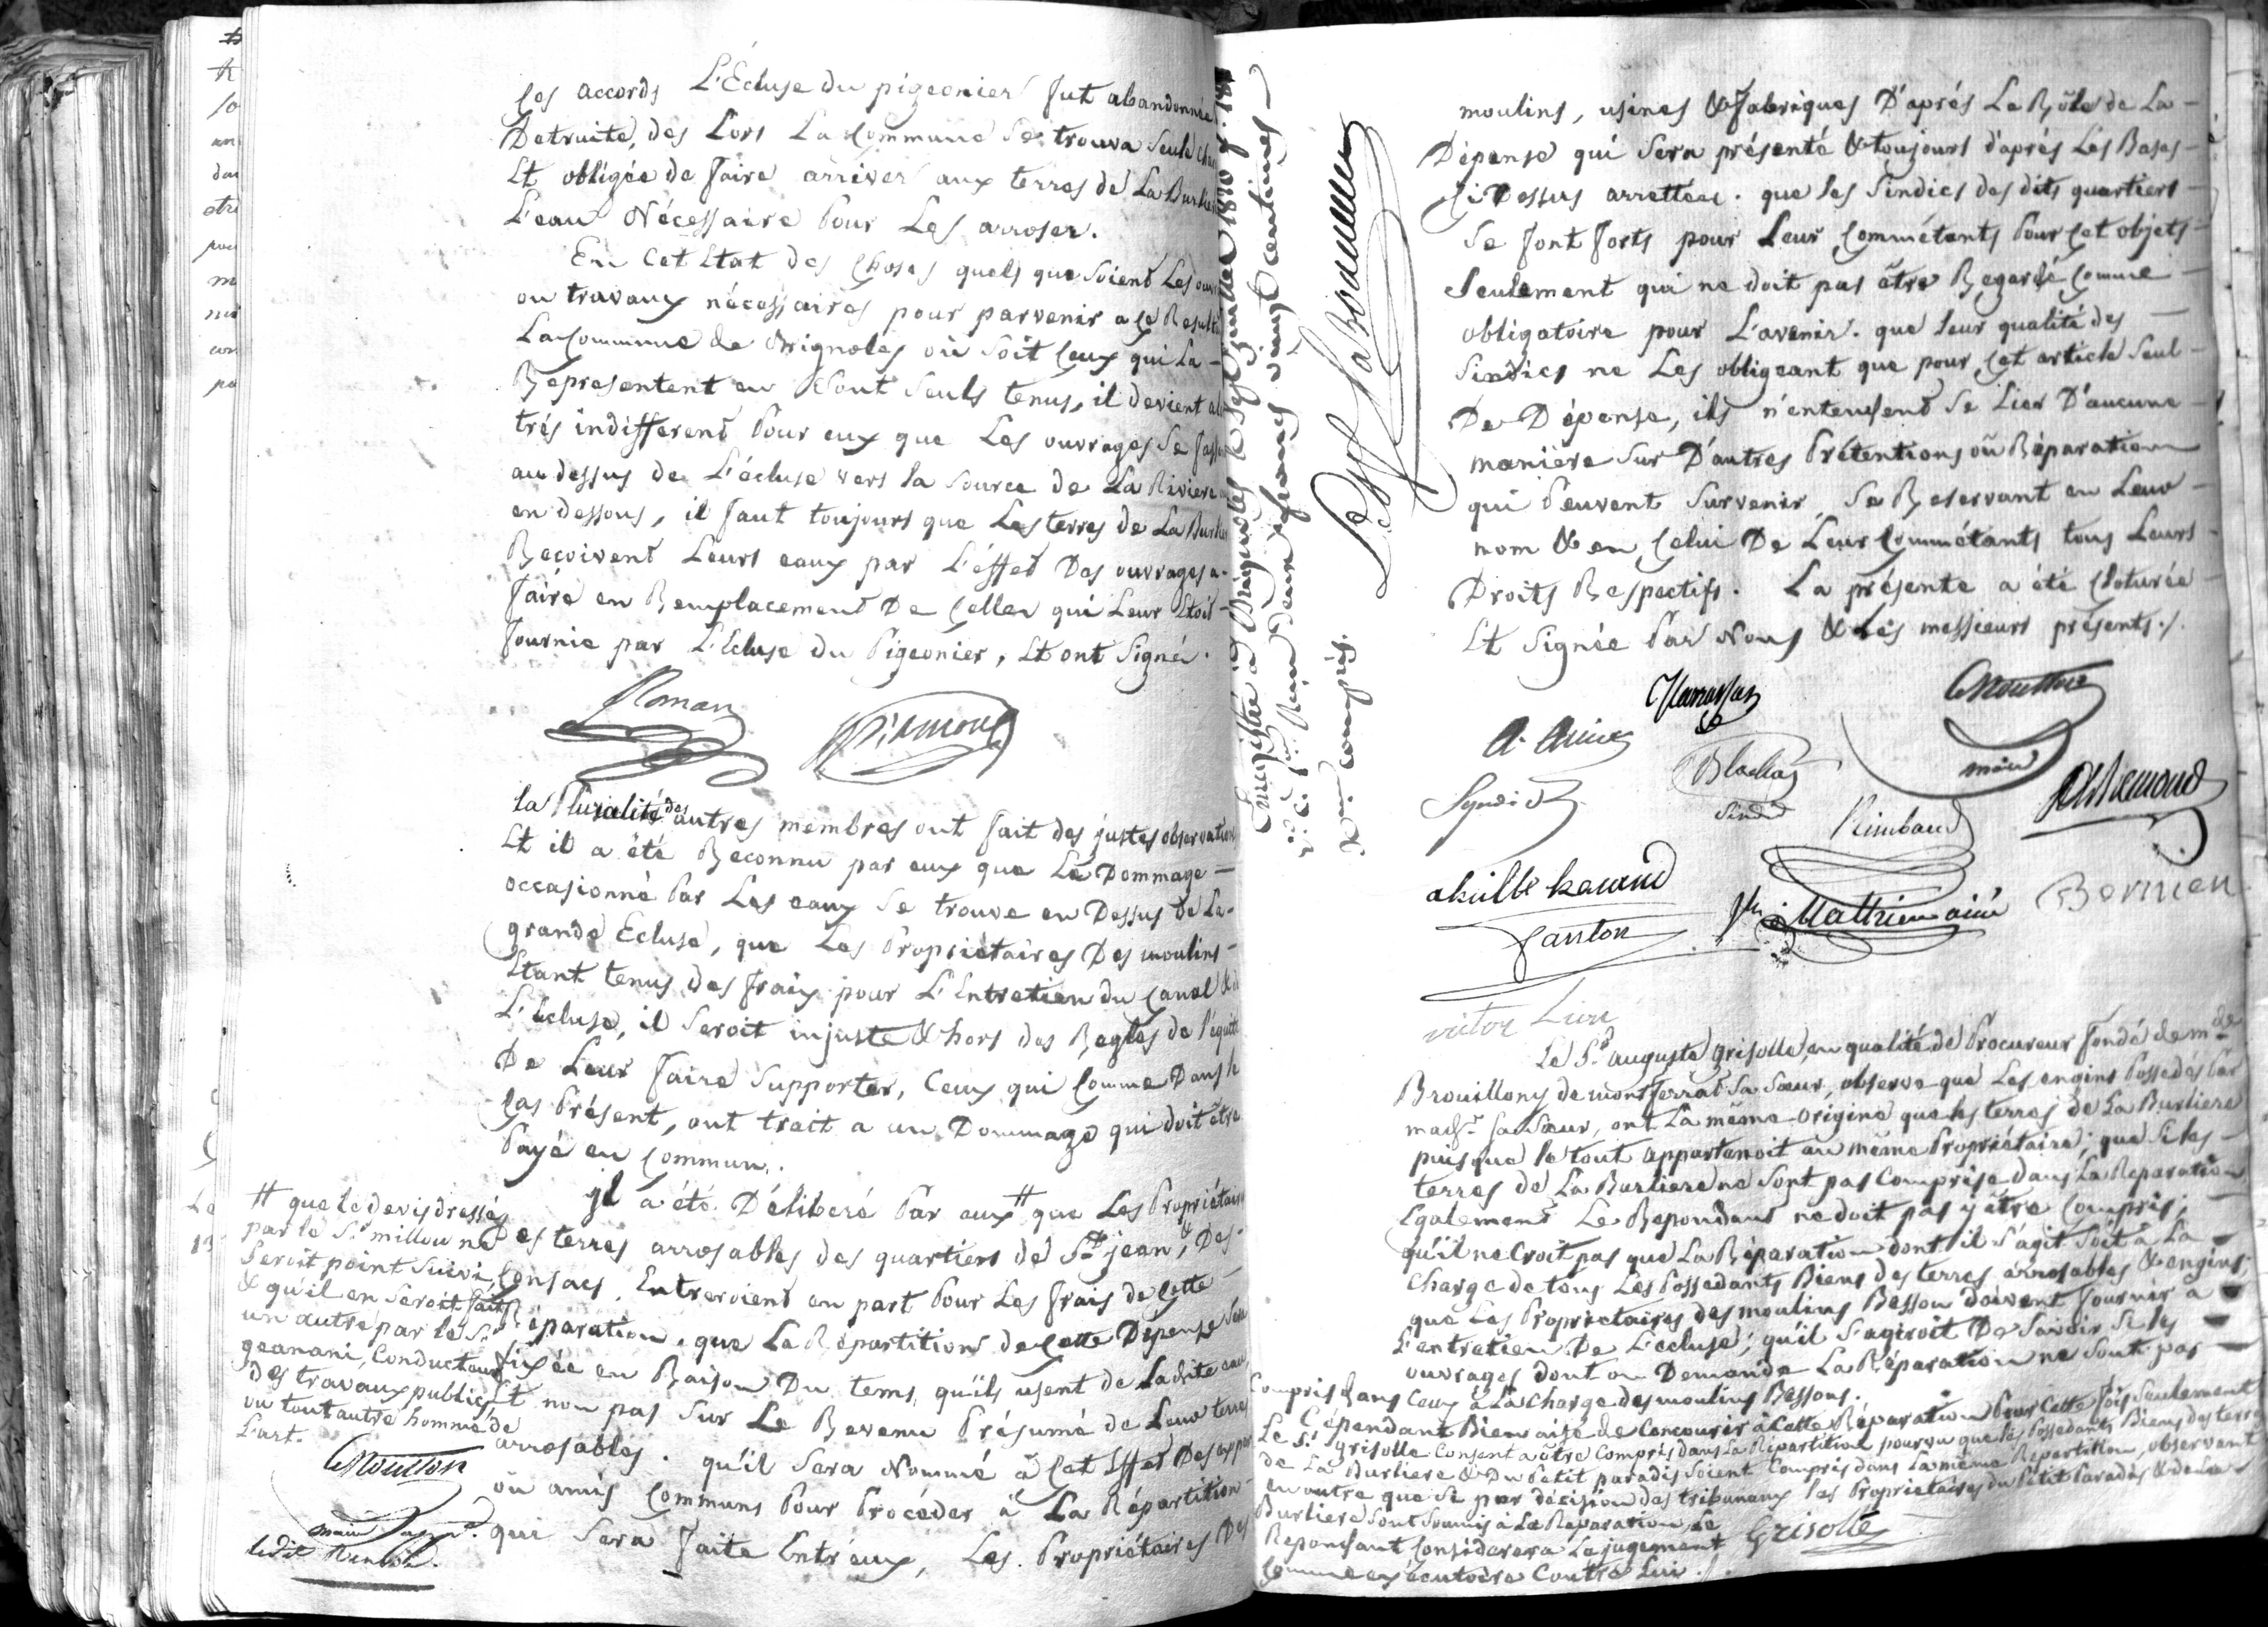 ces accords L'Ecluse du pigeonier fut abandonnée
Detruite, des Lors La Commune Se trouva Seule
Et obligée de faire arriver aux terres de La Burliere
L'eau Nécessaire Pour Les arroser.
En Cet Etat des Choses quels que Soient Les
ou travaux nécessaires pour parvenir a ce Resultat
La Commune de Brignoles où Soit Ceux qui La
Representent en Sont Seuls tenus, il devient
trés indifferent Pour eux que Les ouvrages Se fassent
au dessus de L'écluse vers la Source de La Riviere
en dessous, il faut toujours que Les terres de La Burliere
Reçoivent Leurs eaux par L'éffet Des ouvrages a
faire en Remplacement De Celles qui Leur Etoit
fournie par L'Ecluse du Pigeonier, Et ont Signé.
Roman
la Pluralité des autres membres ont fait des justes observations
Et il a été Reconnu par eux que Le Dommage
occasionné Par Les eaux Se trouve en Dessus de La
grande Ecluse, que Les Propriétaires Des moulins
Etant tenus des fraix pour L'Entretien du Canal &
L'Ecluse, il Seroit injuste & hors des Regles de l'équité
De Leur faire Supporter, Ceux qui Comme Dans le
Cas Présent, ont trait a un Dommage qui doit être
Payé en Commun.
jl a été Déliberé Par eux # que Les Propriétaires
es terres arrosables des quartiers de St jean, & Des
Consacs, Entreroient en part Pour Les frais de Cette
éparation. que La Répartition de Cette Dépense Sera
fixée en Raison Du tems, qu'ils usent de Ladite eau,
Et non pas Sur Le Revenu Présumé de Leur terres
arrosables. qu'il Sera Nommé à Cet Effet Des
où amis Communs Pour Procéder à La Répartition
qui Sera faite Entr'eux, Les Propriétaires Des
# que le devis dressés
par le Sr millou ne
Seroit point Suivi,
& qu'il en Seroit fait
un autre par le Sr
geanani, Conducteur
des travaux publics
ou tout autre homme de
L'art.
Moutton
maire
ledit
Enregistré à Brignoles le Sept 1830
deux francs vingt centimes
compris.
moulins, usines & fabriques D'aprés Le Rôle de La
Dépense qui Sera présenté & toujours d'aprés Les Bases
Ci Dessus arrettées. que les Sindics des dits quartiers
Se font forts pour Leur Commétants Pour Cet objets
Seulement qui ne doit pas être Regardé Comme
obligatoire pour L'avenir. que leur qualité des
Sindics ne Les obligeant que pour Cet article Seul
De Dépense, ils n'entendent Se Lier D'aucune
maniere Sur D'autres Prétentions où Réparation
qui Peuvent Survenir, Se Reservant en Leur
nom & en Celui De Leur Commétants tous Leurs
Droits Respectifs. La présente a été Cloturée
Et Signée Par Nous & Les messieurs présents./.
Moutton
maire
Syndic
Blachas
Sindic
Rimbaud
achille
fanton
Mathieu ainé
Bernien
victor Lion
Le Sr auguste grisolle, en qualité de Procureur fondé de mde
Brouillony de montferrat Sa Sœur, observe que Les engins Possedés Par
Sa Sœur, ont La même origine que les terres de La Burliere
puisque le tout appartenoit au même Propriétaire; que Si les
terres de La Burliere ne Sont pas Comprise dans La Reparation
Egalement Le Repondant ne doit pas y être Compris;
qu'il ne Croit pas que La Réparation dont il S'agit Soit à La
Charge de tous Les Possedants Biens des terres arrosables & engins;
que Les Propriétaires des moulins Bessou doivent fournir à
L'entretien De L'ecluse; qu'il S'agiroit De Savoir Si les
ouvrages dont on Demande La Réparation ne Sont pas
Compris dans Ceux à La Charge des moulins Bessons.
Cépendant Bien aise de Concourir à Cette Réparation Pour Cette fois Seulement
Le Sr grisolle Consent a être Compris dans La Répartition pourvu que les Possedants Biens des terres
de La Burliere & Du Petit paradis Soient Compris dans La même Répartition, observant
en outre que Si par décision des tribunaux les Propriétaires du Petit Paradis & de La
Burliere Sont Soumis à La Réparation Le
Repondant Considerera Le jugement Grisolle
Comme exécutoire Contre Lui ./.